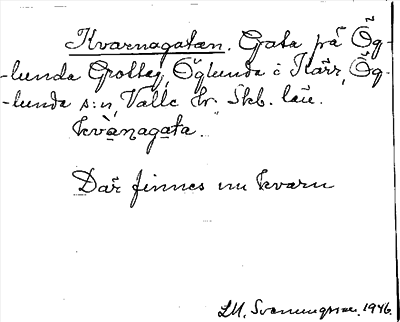 Kvarnagatan. Gata på Ög-
-lunda Grottej, Öglunda i Kärr, Ög-
-lunda s:n, Valle hr. Skb. län.
kvànagata.
Där finnes nu kvarn
LM. Svenungsson. 1946.